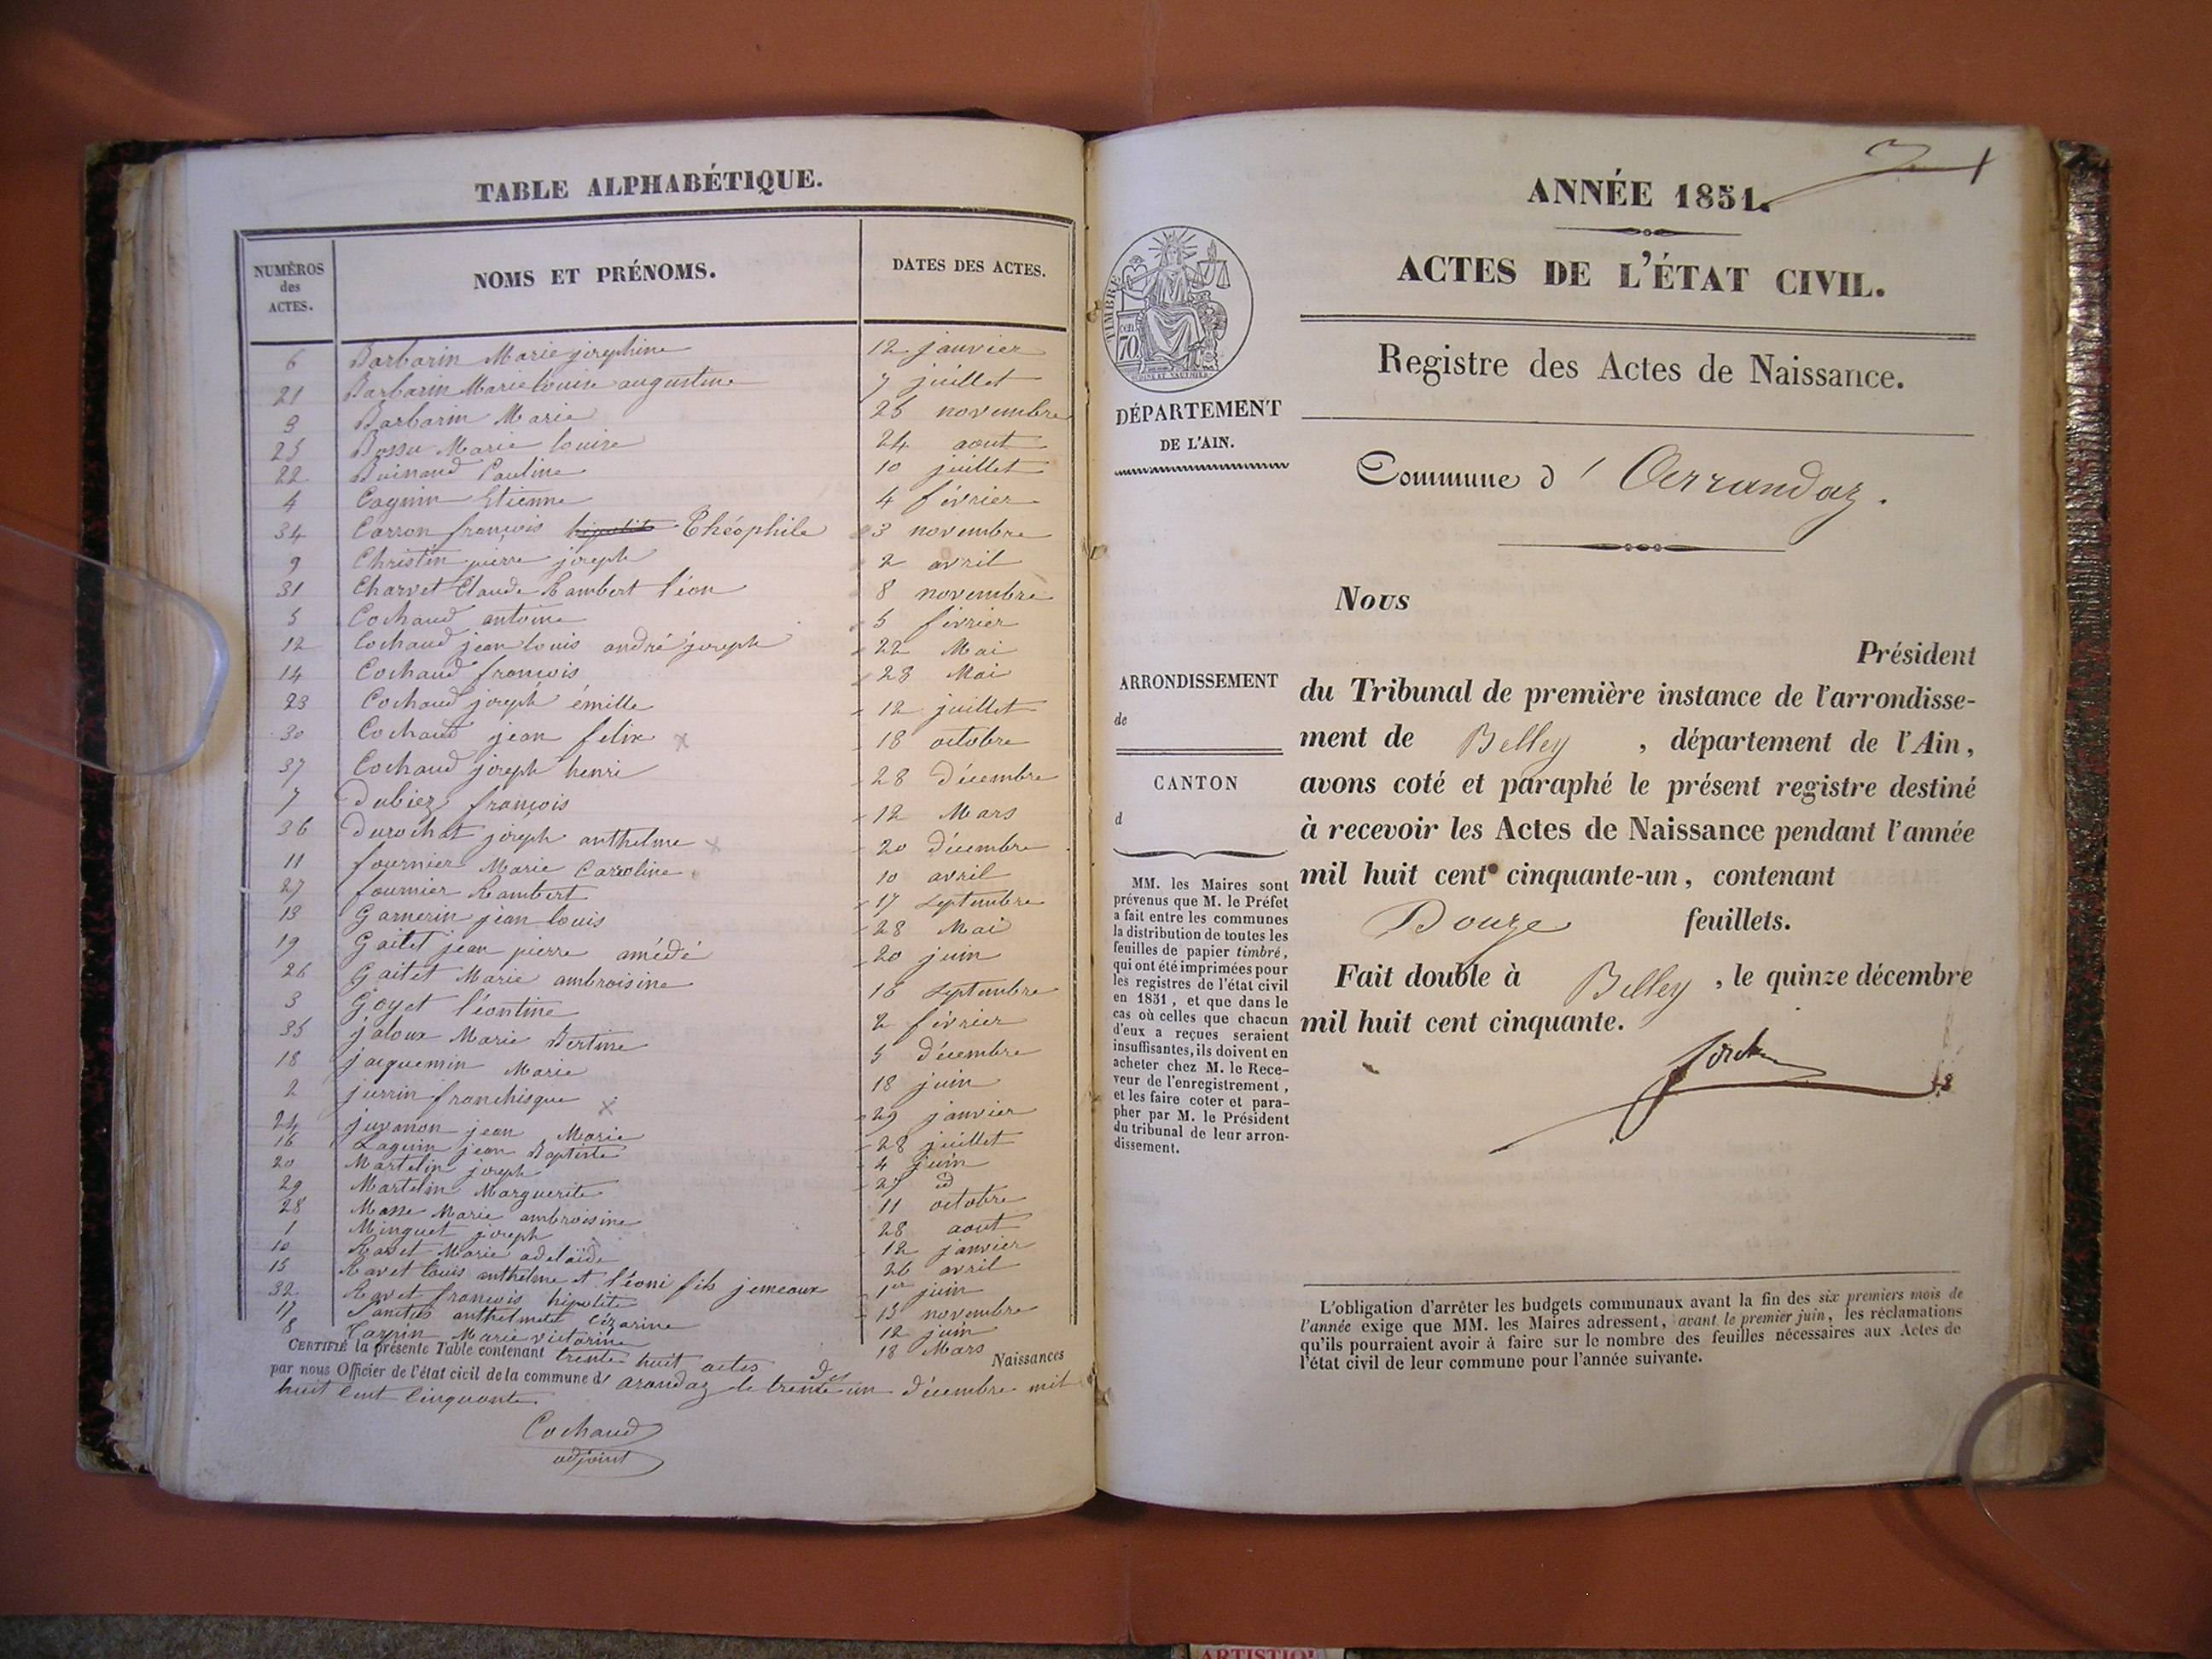 TABLE ALPHABÉTIQUE.
NUMÉROS des ACTES. NOMS ET PRÉNOMS. DATES DES ACTES.
6 Barbarin Marie joséphine 12 janvier
21 Barbarin Marie louise augustine 7 juillet
3 Barbarin Marie 25 novembre
25 Bossu Marie louise 24 aout
22 Buinand Pauline 10 juillet
4 Cagnin Etienne 4 février
34 Carron françois hipolite Théophile 3 novembre
9 Christin pierre joseph 2 avril
31 Charvet Claude Rambert léon 8 novembre
5 Cochaud antoine 5 février
12 Cochaud jean louis andré joseph 22 Mai
14 Cochaud françois 28 Mai
23 Cochaud joseph émille 12 juillet
30 Cochaud jean felix x 18 octobre
37 Cochaud joseph henri 28 décembre
7 Dubiez françois 12 Mars
36 Durochat joseph anthelme x 20 décembre
11 fournier Marie Caroline 10 avril
27 fournier Rambert 17 septembre
13 Garnerin jean louis 28 Mai
19 Gaitet jean pierre amédé 20 juin
26 Gaitet Marie ambroisine 16 septembre
3 Goyet léontine 2 février
35 jaloux Marie Bertine 5 décembre
18 jacquemin Marie 18 juin
2 jurrin franchisque x 29 janvier
24 juvanon jean Marie 28 juillet
16 Laguin jean Baptiste 4 juin
20 Martelin joseph 27 id
29 Martelin Marguerite 11 octobre
28 Masse Marie ambroisine 28 aout
1 Minguet joseph 12 janvier
10 Ravet Marie adelaïde 26 avril
15 Ravet louis anthelme et léoni fils jemeaux 1er juin
32 Ravet françois hipolite 13 novembre
17 anthelmette Cézarine 12 juin
8 Marie victorine 18 Mars
CERTIFIÉ la présente Table contenant trente huit actes des Naissances
par nous Officier de l'état civil de la commune d' arandaz le trente un décembre mil
huit cent cinquante
Cochaud
adjoint
ANNÉE 1851.
ACTES DE L'ÉTAT CIVIL.
Registre des Actes de Naissance.
TIMBRE
70
DÉPARTEMENT
DE L'AIN.
Commune d' Arrandaz.
Nous
Président
ARRONDISSEMENT
de
CANTON
d
du Tribunal de première instance de l'arrondisse-
ment de Belley, département de l'Ain,
avons coté et paraphé le présent registre destiné
à recevoir les Actes de Naissance pendant l'année
mil huit cent cinquante-un, contenant
Douze feuillets.
Fait double à Belley, le quinze décembre
mil huit cent cinquante.
MM. les Maires sont
prévenus que M. le Préfet
a fait entre les communes
la distribution de toutes les
feuilles de papier timbré,
qui ont été imprimées pour
les registres de l'état civil
en 1851, et que dans le
cas où celles que chacun
d'eux a reçues seraient
insuffisantes, ils doivent en
acheter chez M. le Rece-
veur de l'enregistrement,
et les faire coter et para-
pher par M. le Président
du tribunal de leur arron-
dissement.
L'obligation d'arrêter les budgets communaux avant la fin des six premiers mois de
l'année exige que MM. les Maires adressent, avant le premier juin, les réclamations
qu'ils pourraient avoir à faire sur le nombre des feuilles nécessaires aux Actes de
l'état civil de leur commune pour l'année suivante.